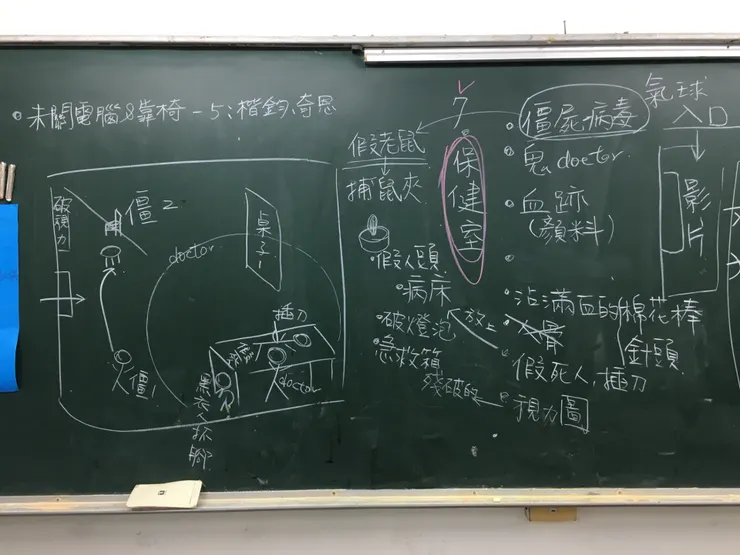 未關電腦&靠椅-5:楷鈞、奇恩
破視力
僵2
桌子1
doctor
僵1
插刀
doctor
黑衣人抓腳
7
保健室
假老鼠
捕鼠夾
假人頭
病床
破燈泡
放上
急救箱
殘破的
僵屍病毒
鬼doctor.
血跡
(顏料)
沾滿血的棉花棒
針頭
人骨
假死人,插刀
視力圖
氣球
入口
影片